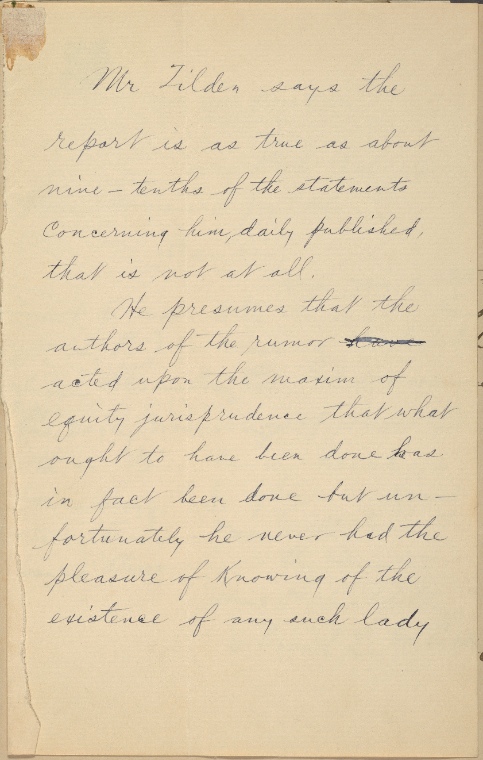 Mr Tilden says the
report is as true as about
nine-tenths of the statements
Concerning him, daily published,
that is not at all.
He presumes that the
authors of the rumor have
acted upon the maxim of
equity jurisprudence that what
ought to have been done has
in fact been done but un-
fortunately he never had the
pleasure of Knowing of the
existence of any such lady